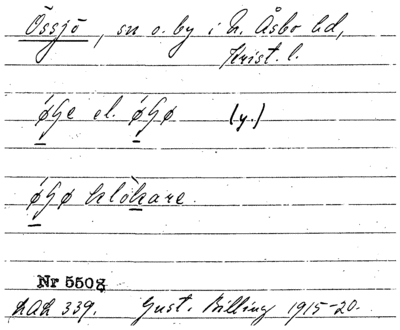 Össjö, sn o. by i N. Åsbo hd,
Krist. l.
øʃe el. øʃø (y.)
øʃø klökare.
Nr 5508
LAL 339. Gust. Billing 1915-20.